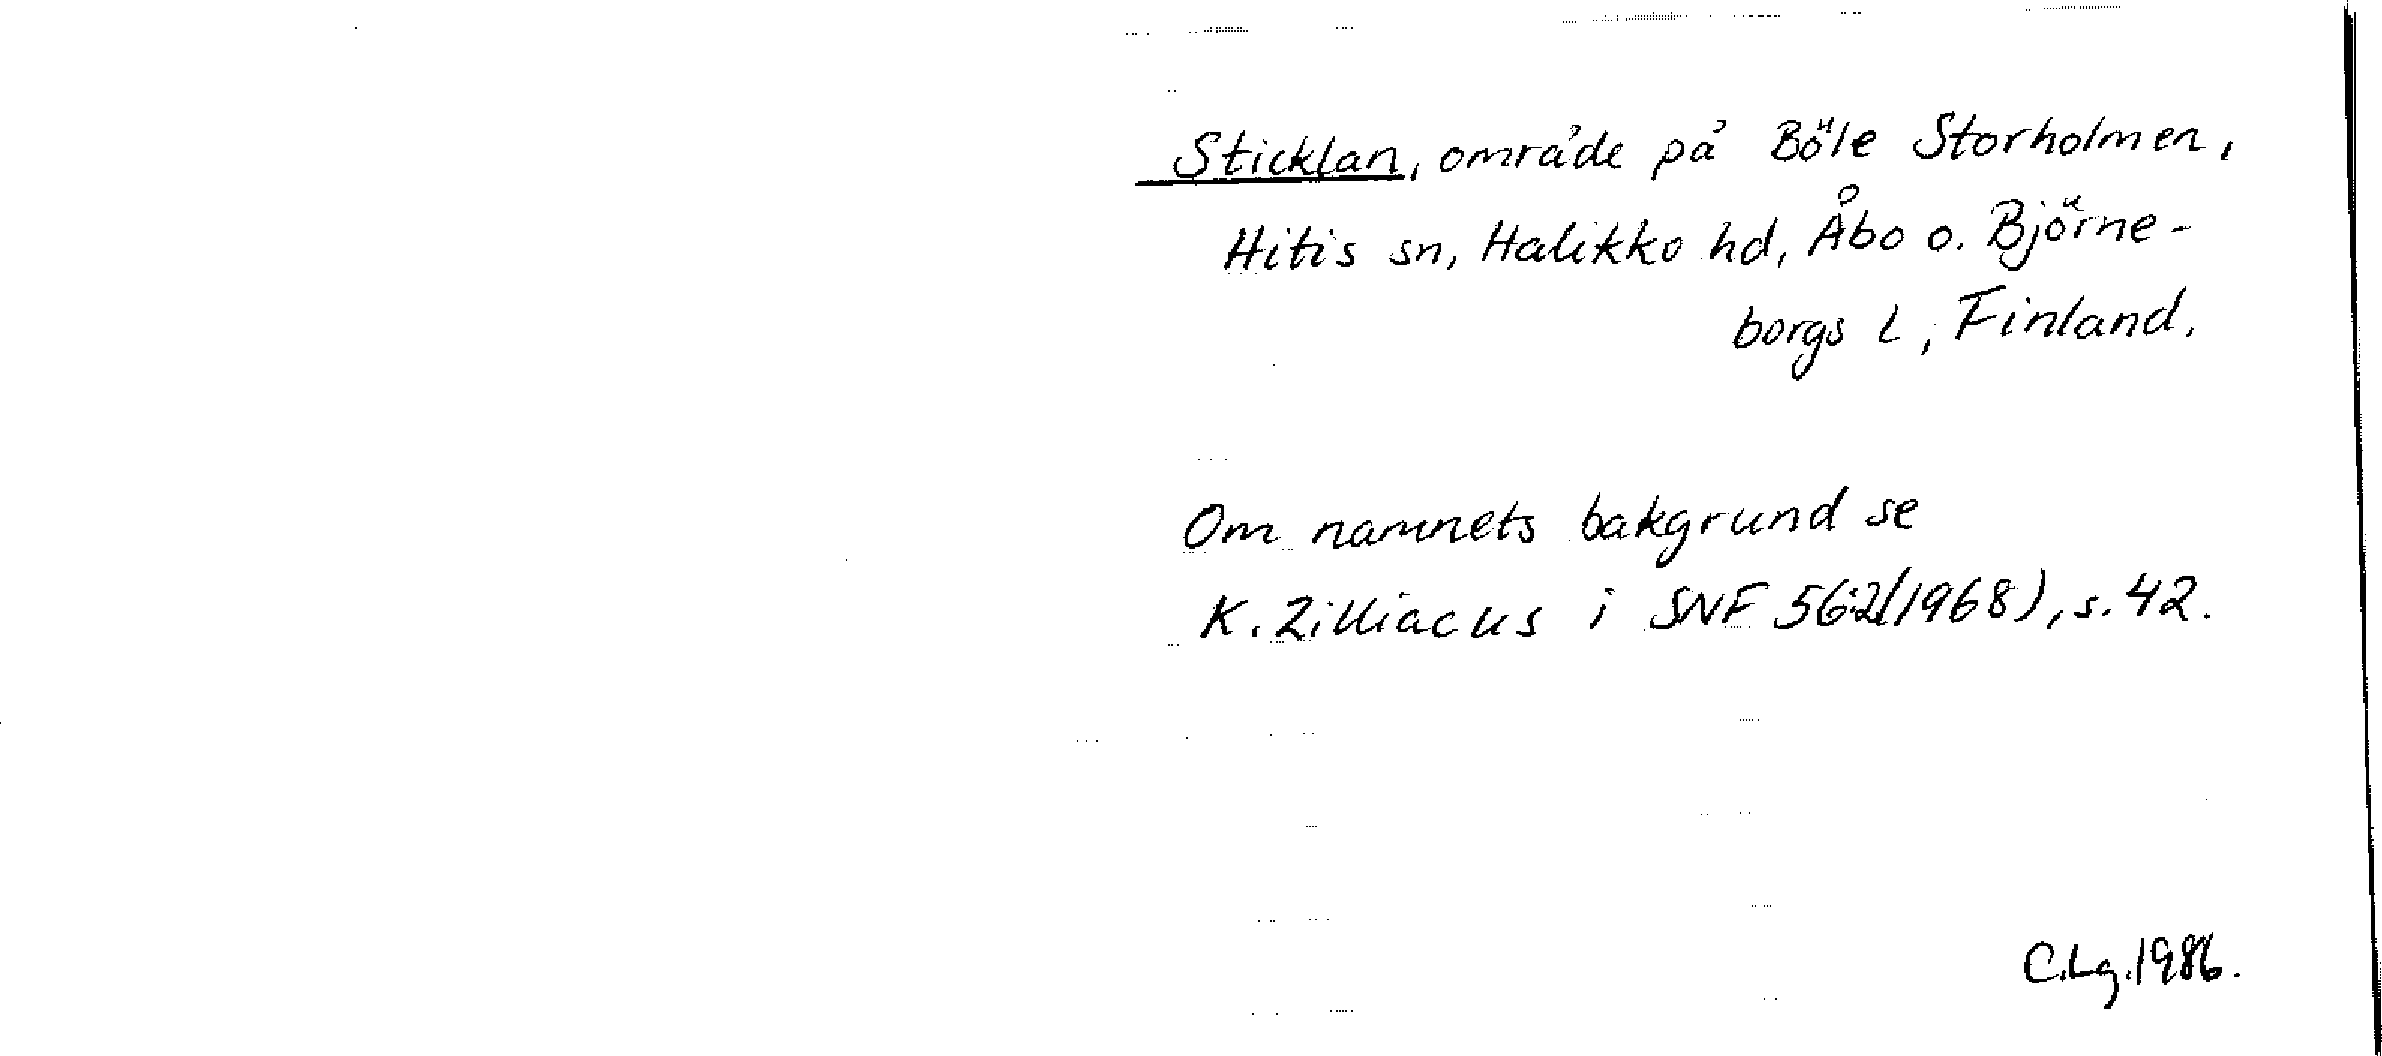 Sticklan, område på Böle Storholmen,
Hitis sn, Halikko hd, Åbo o. Björne-
borgs L, Finland.
Om namnets bakgrund se
K. Zilliacus i SNF 56:2(1968), s. 42.
C.Lg.1986.